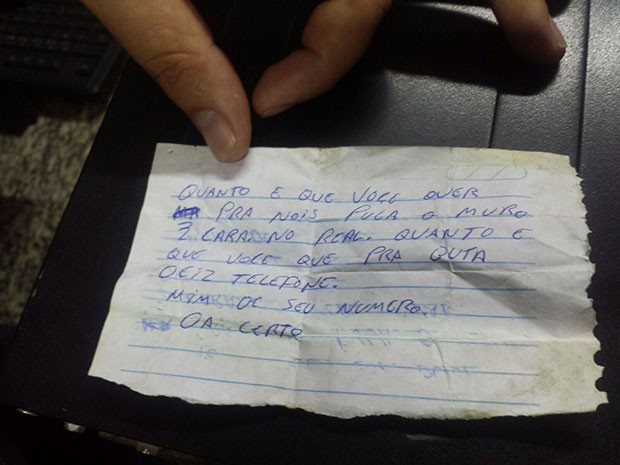 QUANTO E QUE VOCE QUER
PRA NOIS PULA O MURO
3 CARA. NO REAL. QUANTO E
QUE VOCE QUE PRA QUTA
DEIZ TELEFONE.
MIM DE SEU NUMERO
DA CERTO